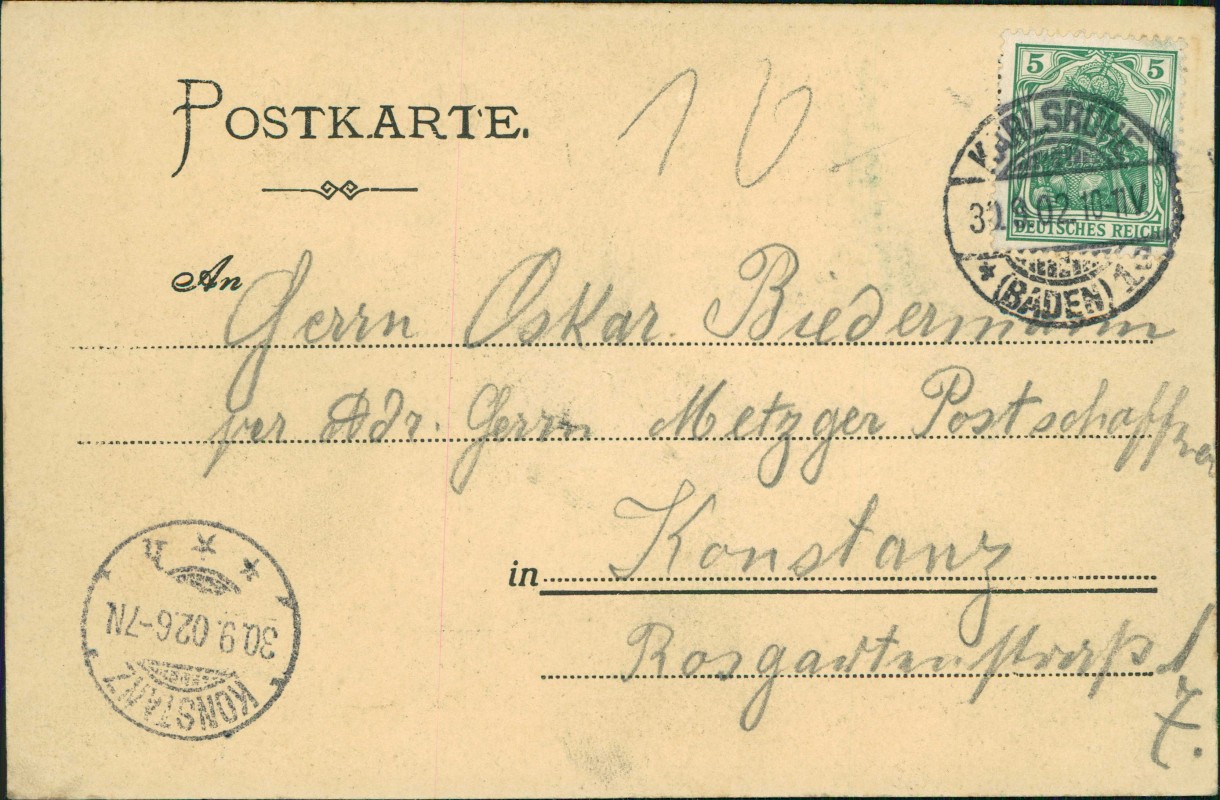 POSTKARTE.
10
5 5
DEUTSCHES REICH
KARLSRUHE
30.9.02. 10-11V
* (BADEN) 1.
An Herrn Oskar Biedermann
per Adr. Herrn Metzger Postschaffner
in Konstanz
Rosgartenstraß
7.
30.9.02.6-7N
KONSTANZ